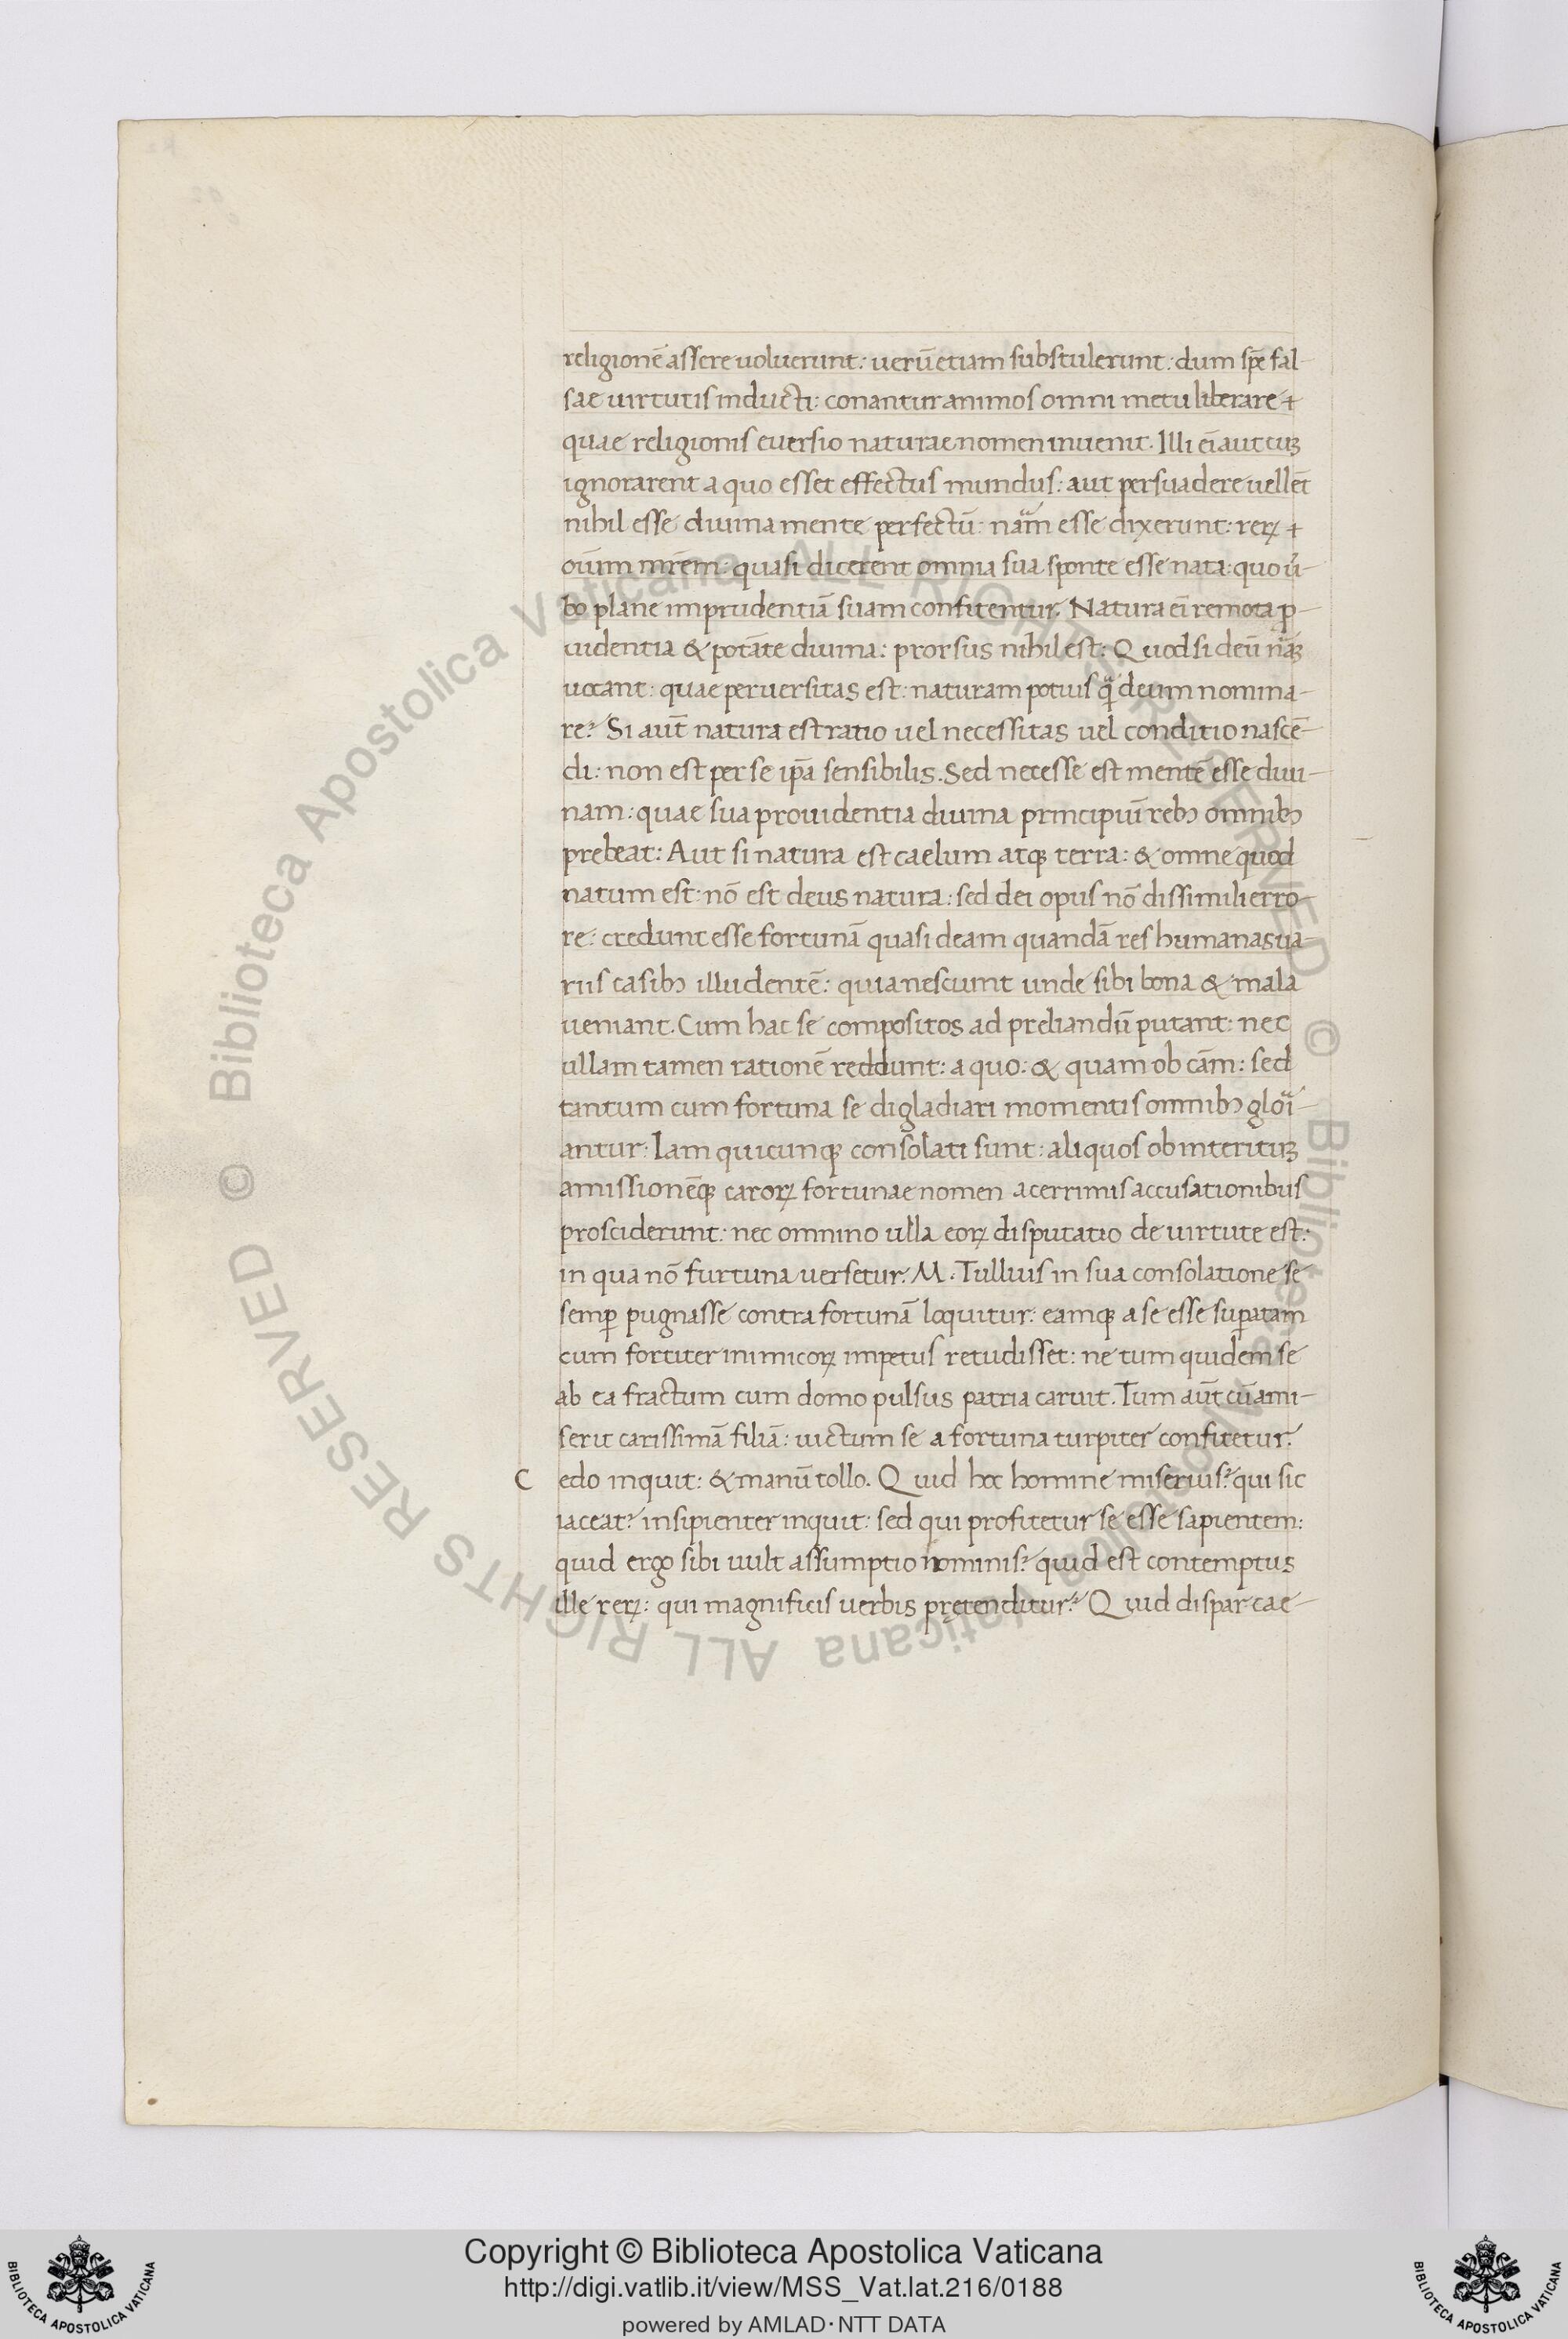 religionē assere uoluerunt: uerū etiam substulerunt: dum spē fal-
sae uirtutis inducti: conantur animos omni metu liberare +
quae religionis euersio naturae nomen inuenit. Illi ei̅ aut cuȝ
ignorarent a quo esset effectus mundus: aut persuadere uellēt
nihil esse diuina mente perfectū: nãm esse dixerunt: rerꝝ +
oiūm mrēm: quasi dicerent omnia sua sponte esse nata: quo ū-
bo plane imprudentiā suam confitentur. Natura ei̅ remota p-
uidentia & potāte diuina: prorsus nihil est: Quod si deū nãȝ
uocant: quae peruersitas est: naturam potius qͣ deum nomina-
re? Si aut̄ natura est ratio uel necessitas uel conditio nascē-
di: non est per se ip̄a sensibilis. Sed necesse est mentē esse diui-
nam: quae sua prouidentia diuina principiū rebꝰ omnibꝰ
prebeat: Aut si natura est caelum atqꝫ terra: & omne quod
natum est: nō est deus natura: sed dei opus nō dissimili erro-
re: credunt esse fortunā quasi deam quandā res humanas ua-
riis casibꝰ illudentē: quia nescunt unde sibi bona & mala
ueniant. Cum hac se compositos ad preliandū putant: nec
ullam tamen rationē reddunt: a quo: & quam ob cām: sed
tantum cum fortuna se digladiari momentis omnibꝰ gloi-
antur: Iam quicunqꝫ consolati sunt: aliquos ob interituȝ
amissionēqꝫ carorꝝ fortunae nomen acerrimis accusationibus
prosciderunt: nec omnino ulla eorꝝ disputatio de uirtute est:
in qua nō furtuna uersetur. M. Tullius in sua consolatione se
semꝑ pugnasse contra fortunā loquitur: eamqꝫ a se esse suꝑatam
cum fortiter inimicorꝝ impetus retudisset: ne tum quidem se
ab ea fractum cum domo pulsus patria caruit. Tum aut̄ cū ami-
serit carissimā filiā: uictum se a fortuna turpiter confitetur.
C edo inquit: & manū tollo. Quid hoc homine miserius? qui sic
iaceat? insipienter inquit: sed qui profitetur se esse sapientem:
quid ergo sibi uult assumptio nominis? quid est contemptus
ille rerꝝ: qui magnificis uerbis prętenditur? Quid dispar cae-
Copyright © Biblioteca Apostolica Vaticana
http://digi.vatlib.it/view/MSS_Vat.lat.216/0188
powered by AMLAD·NTT DATA
BIBLIOTECA APOSTOLICA VATICANA
BIBLIOTECA APOSTOLICA VATICANA
© Biblioteca Apostolica Vaticana ALL RIGHTS RESERVED
© Biblioteca Apostolica Vaticana ALL RIGHTS RESERVED